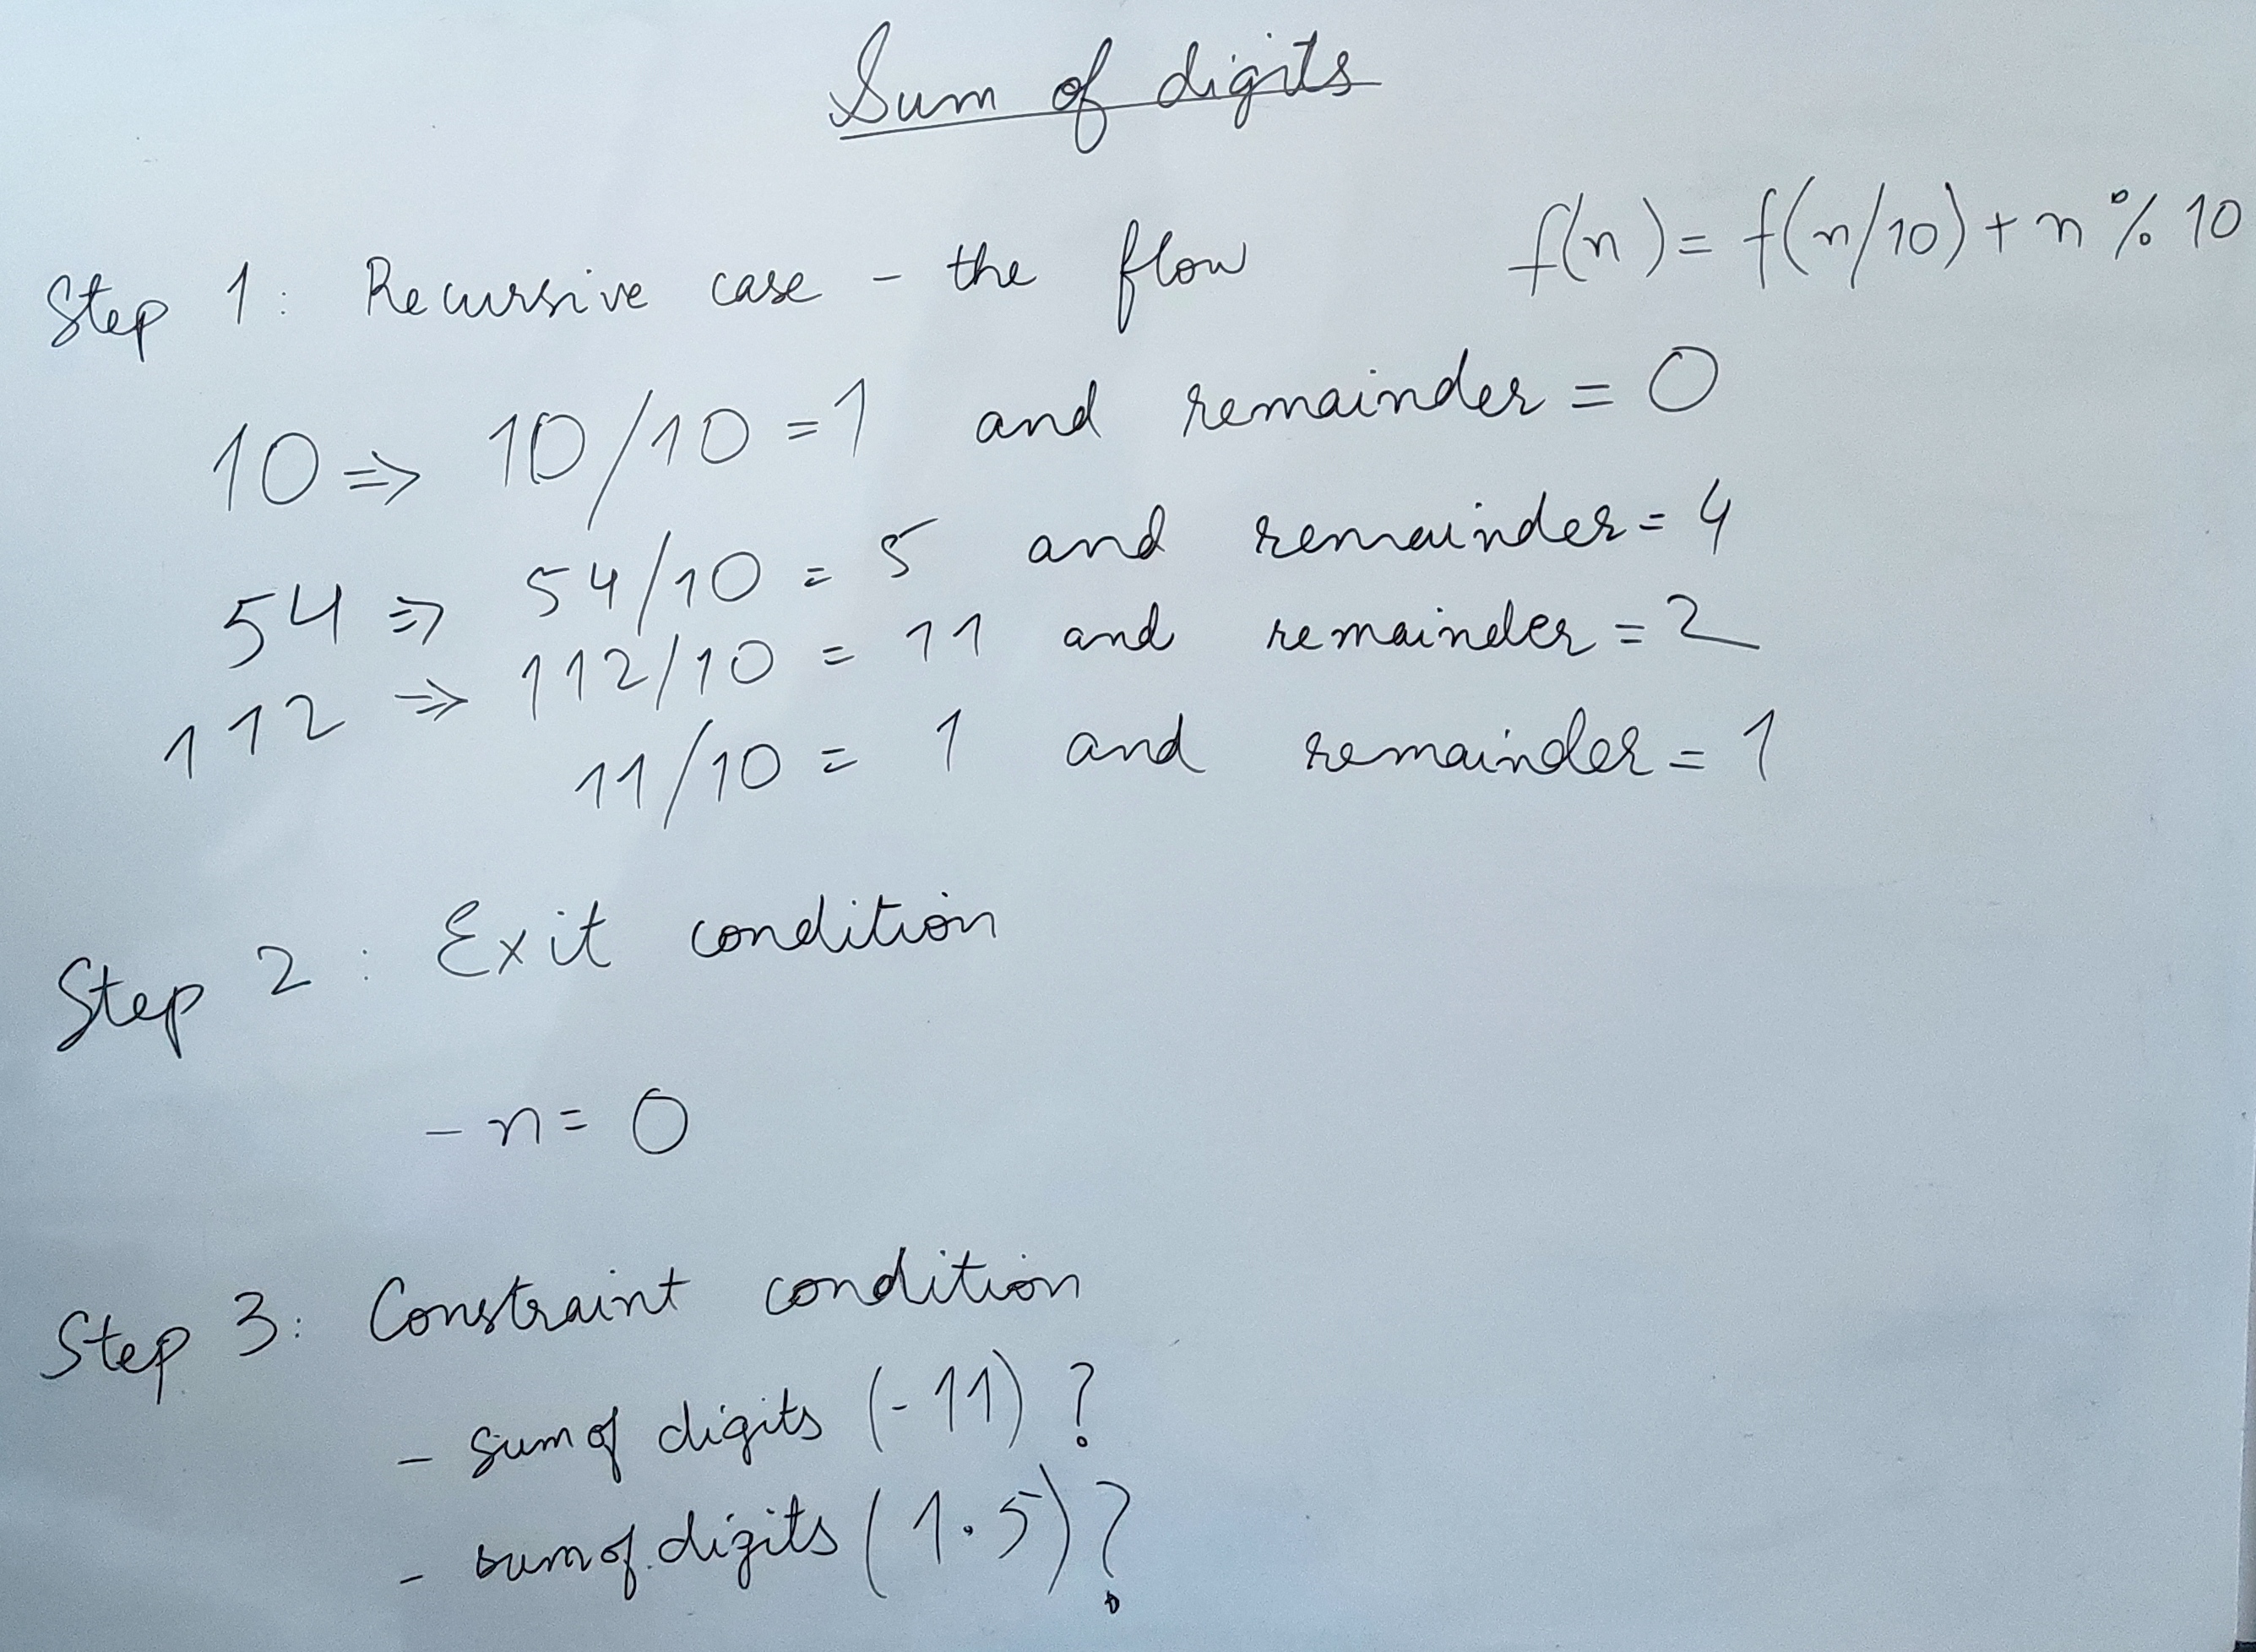 Sum of digits
Step 1: Recursive case - the flow f(n) = f(n/10) + n % 10
10 => 10/10 = 1 and remainder = 0
54 => 54/10 = 5 and remainder = 4
112 => 112/10 = 11 and remainder = 2
11/10 = 1 and remainder = 1
Step 2: Exit condition
- n = 0
Step 3: Constraint condition
- sum of digits (-11) ?
- sum of digits (1.5) ?